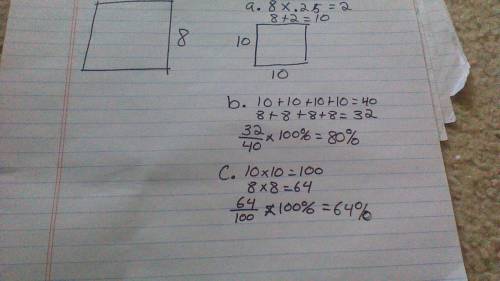 a. 8 x .25 = 2
8 + 2 = 10
8
10
10
b. 10 + 10 + 10 + 10 = 40
8 + 8 + 8 + 8 = 32
32/40 x 100% = 80%
C. 10 x 10 = 100
8 x 8 = 64
64/100 x 100% = 64%